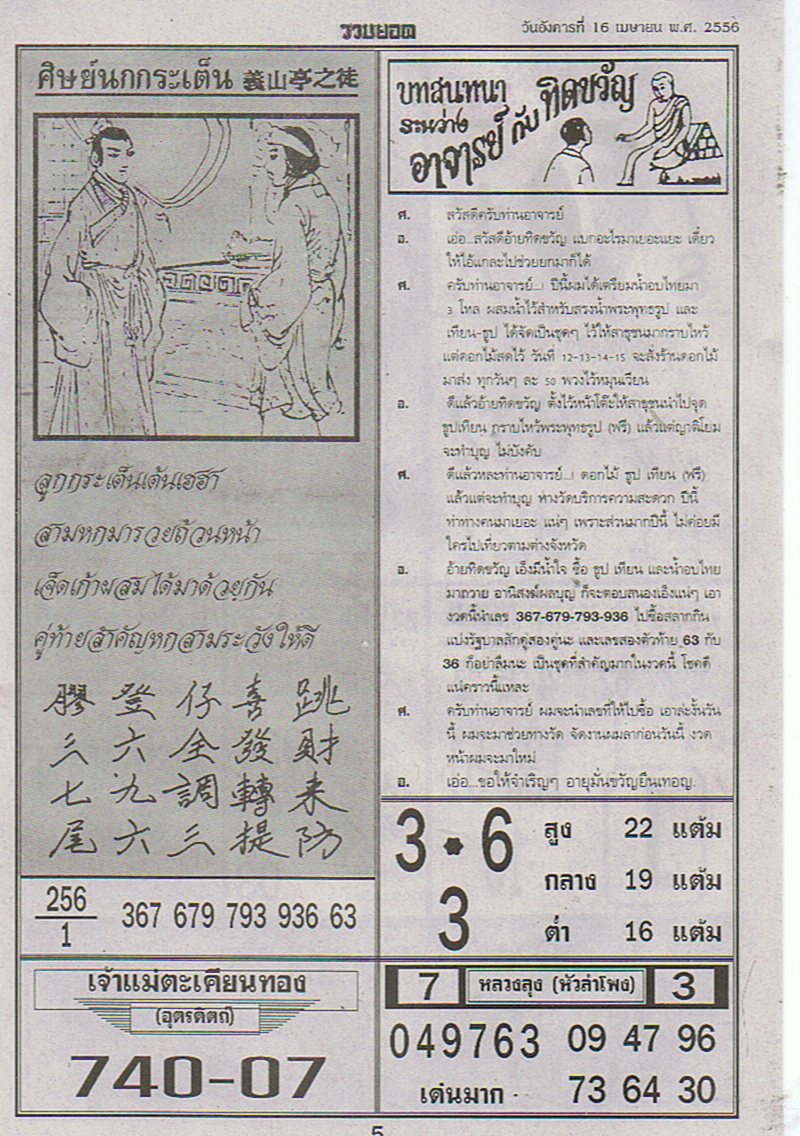 รวมยอด
วันอังคารที่ 16 เมษายน พ.ศ. 2556
ศิษย์นกกระเต็น 義山亭之徒
ลูกกระเด็นเต้นเฮฮา
สามหกมารวยถ้วนหน้า
เจ็ดเก้าผสมได้มาด้วยกัน
คู่ท้ายสำคัญหกสามระวังให้ดี
膠 登 仔 喜 跳
三 六 全 發 財
七 九 調 轉 来
尾 六 三 提 防
256
1
367 679 793 936 63
เจ้าแม่ตะเคียนทอง
(อุตรดิตถ์)
740-07
บทสนทนา
ระหว่าง
อาจารย์ กับ ทิดขวัญ
ศ. สวัสดีครับท่านอาจารย์
อ. เอ่อ...สวัสดีอ้ายทิดขวัญ แบกอะไรมาเยอะแยะ เดี๋ยว
ให้ไอ้แกละไปช่วยยกมาก็ได้
ศ. ครับท่านอาจารย์...! ปีนี้ผมได้เตรียมน้ำอบไทยมา
3 โหล ผสมน้ำไว้สำหรับสรงน้ำพระพุทธรูป และ
เทียน-ธูป ได้จัดเป็นชุดๆ ไว้ให้สาธุชนมากราบไหว้
แต่ดอกไม้สดไว้ วันที่ 12-13-14-15 จะสั่งร้านดอกไม้
มาส่ง ทุกวันๆ ละ 50 พวงไว้หมุนเวียน
อ. ดีแล้วอ้ายทิดขวัญ ตั้งไว้หน้าโต๊ะให้สาธุชนนำไปจุด
ธูปเทียน กราบไหว้พระพุทธรูป (ฟรี) แล้วแต่ญาติโยม
จะทำบุญ ไม่บังคับ
ศ. ดีแล้วหละท่านอาจารย์...! ดอกไม้ ธูป เทียน (ฟรี)
แล้วแต่จะทำบุญ ทางวัดบริการความสะดวก ปีนี้
ท่าทางคนมาเยอะ แน่ๆ เพราะส่วนมากปีนี้ ไม่ค่อยมี
ใครไปเที่ยวตามต่างจังหวัด
อ. อ้ายทิดขวัญ เอ็งมีน้ำใจ ซื้อ ธูป เทียน และน้ำอบไทย
มาถวาย อานิสงฆ์ผลบุญ ก็จะตอบสนองเอ็งแน่ๆ เอา
งวดนี้นำเลข 367-679-793-936 ไปซื้อสลากกิน
แบ่งรัฐบาลสักคู่สองคู่นะ และเลขสองตัวท้าย 63 กับ
36 ก็อย่าลืมนะ เป็นชุดที่สำคัญมากในงวดนี้ โชคดี
แน่คราวนี้แหละ
ศ. ครับท่านอาจารย์ ผมจะนำเลขที่ให้ไปซื้อ เอาล่ะงั้นวัน
นี้ ผมจะมาช่วยทางวัด จัดงานผมลาก่อนวันนี้ งวด
หน้าผมจะมาใหม่
อ. เอ่อ...ขอให้จำเริญๆ อายุมั่นขวัญยืนเทอญ.
3 * 6
3
สูง 22 แต้ม
กลาง 19 แต้ม
ต่ำ 16 แต้ม
7 หลวงลุง (หัวลำโพง) 3
049763 09 47 96
เด่นมาก 73 64 30
5